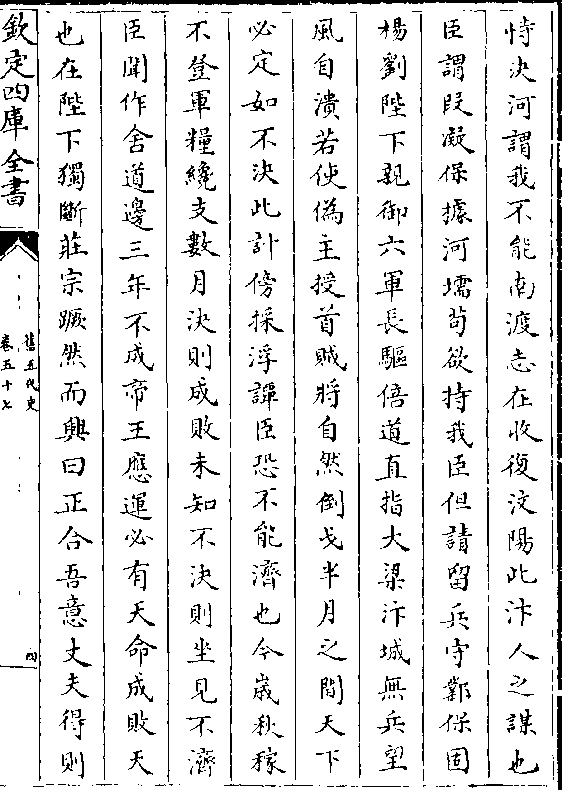 恃決河謂我不能南渡志在收復汶陽此汴人之謀也
臣謂段凝保據河壖苟欲持我臣但請留兵守鄴保固
楊劉陛下親御六軍長驅倍道直指大梁汴城無兵望
風自潰若使偽主授首賊將自然倒戈半月之間天下
必定如不決此計傍採浮譚臣恐不能濟也今歲秋稼
不登軍糧纔支數月決則成敗未知不決則坐見不濟
臣聞作舍道邊三年不成帝王應運必有天命成敗天
也在陛下獨斷莊宗蹶然而興曰正合吾意丈夫得則
欽定四庫全書
舊五代史
卷五十七
四